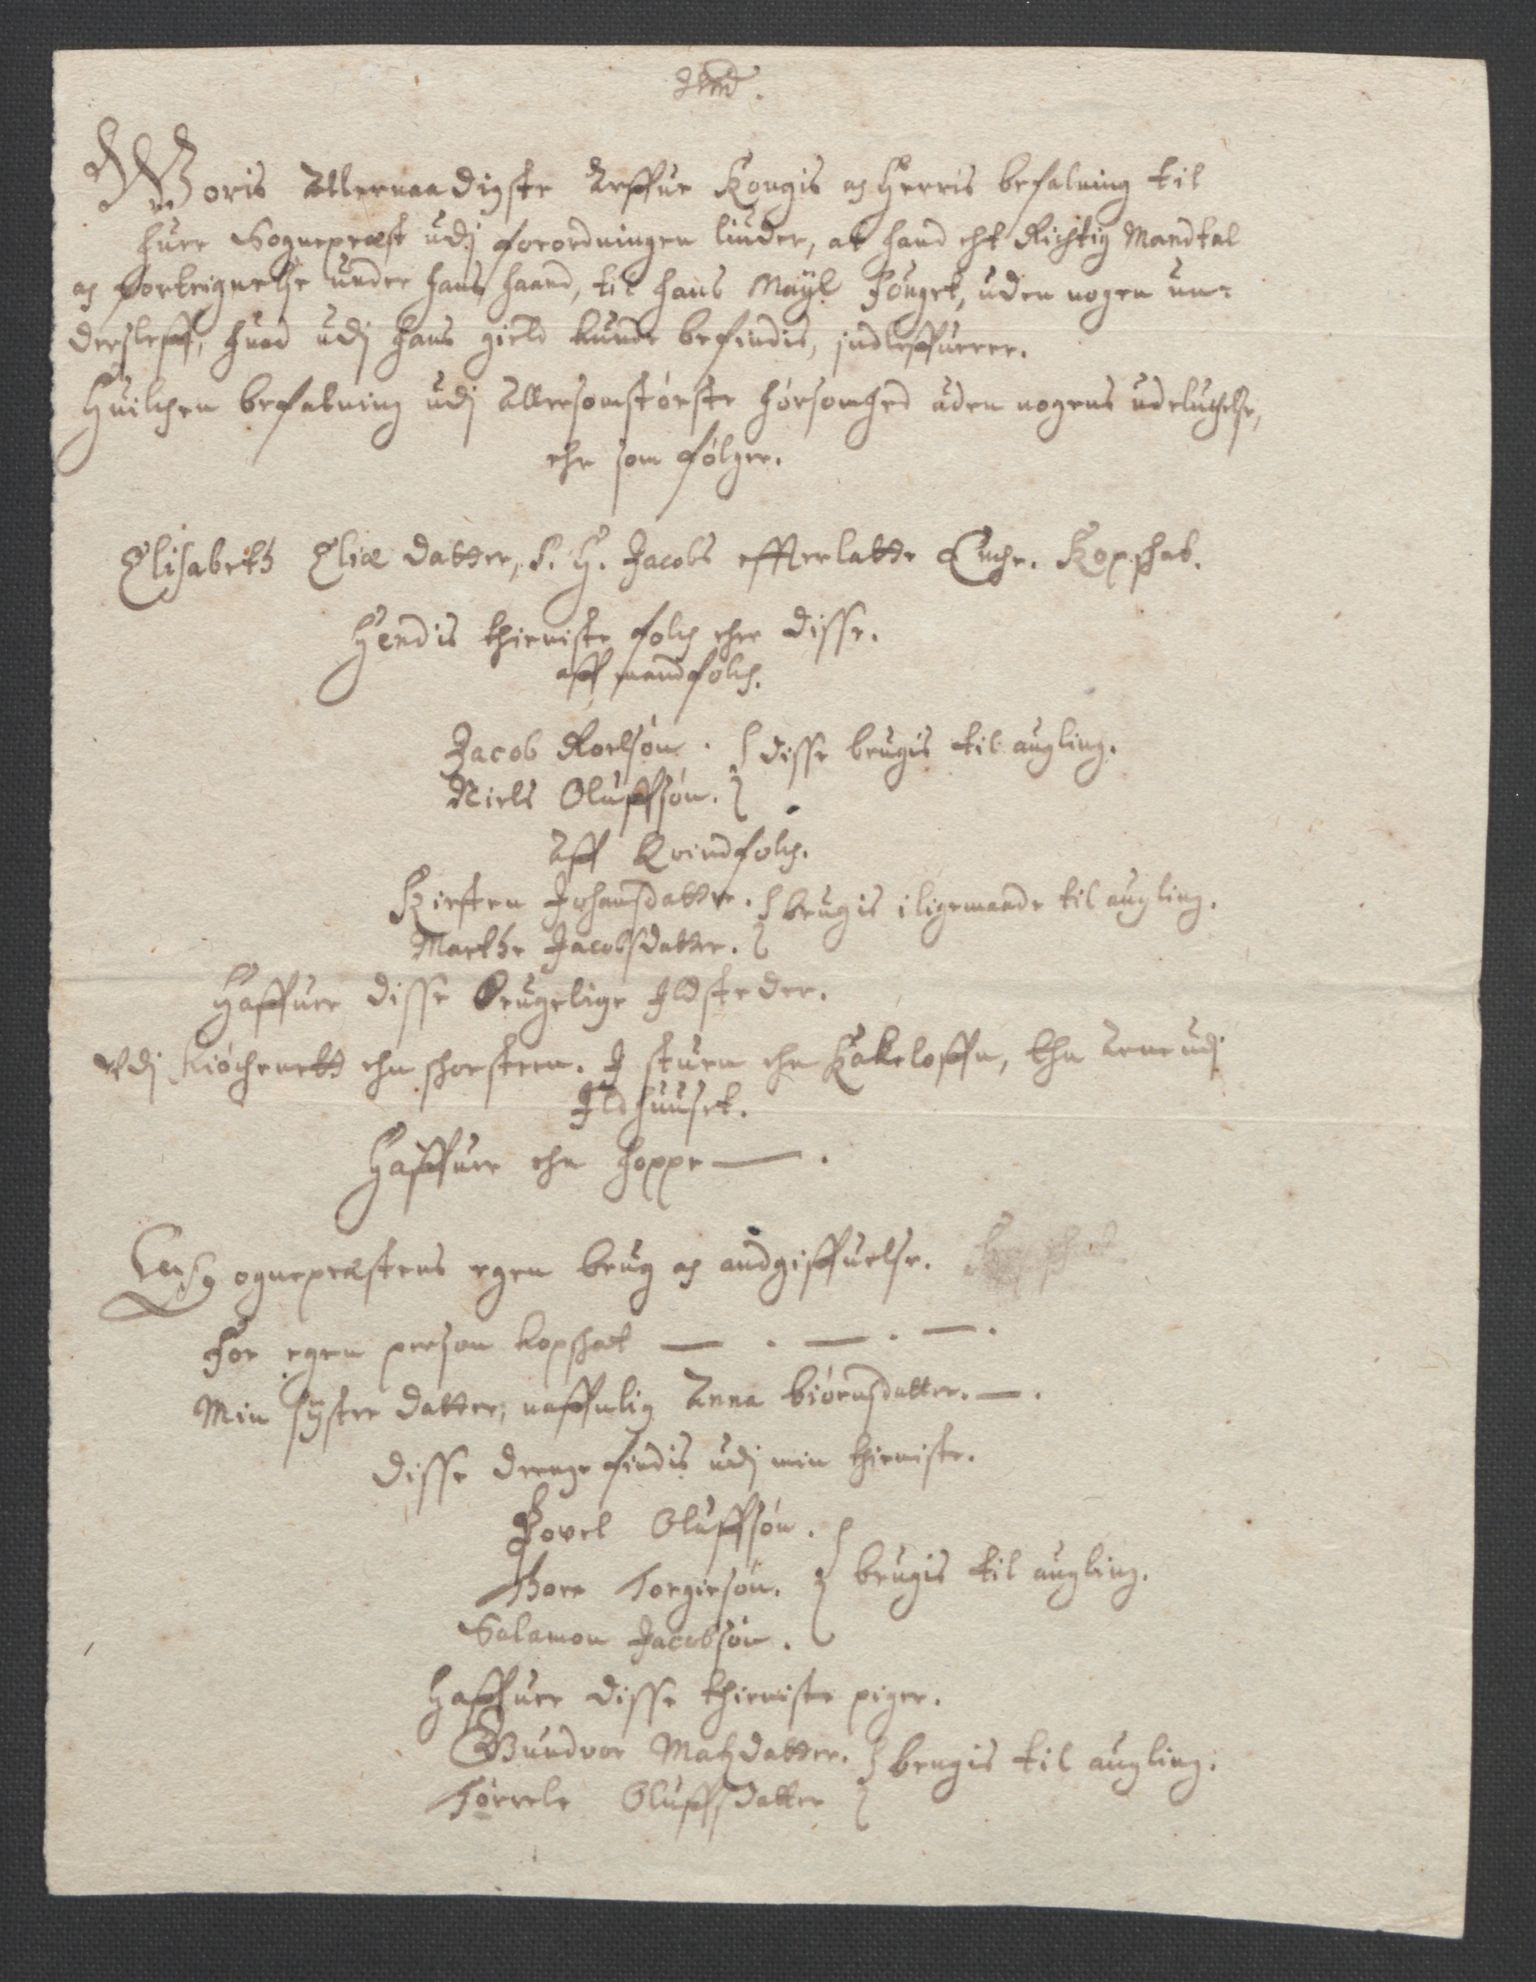 Woris Allernaadigste Arffue Kongis og Herris befalning til
huer Sognepræst udj forordningen liuder, at hand eht Richtig Mandtal
og forteignelse under hans haand, til hans Mayt fouget, uden nogen un-
derslæff, huad udj hans gield kunde befindis, indleffuerer.
Huilchen befalning udj Allersomstørste hørsomhed uden nogens udeluchelse,
ehr som følger.
Elisabeth Eliæ datter, S. H. Jacobs effterlatte Enche. Kopschat.
Hendis thieniste folch ehre disse.
aff mandfolch.
Jacob Roelsøn. disse brugis til augling.
Niels Oluffsøn.
Aff Kvindfolch.
Kirsten Johansdatter. brugis i ligemaade til augling.
Marthe Jacobsdatter.
Haffuer disse brugelige Ildsteder.
Vdj Kiøchenett ehn schorsteen. J stuen ehn Kakeloffn, Ehn Arne udj
Ildhuuset.
Haffuer ehn hoppe —.
Sognepræstens egen brug og andgiffuelse.
For egen person kopschat — . — . — .
Min syster datter, naffnlig Anna biørnsdatter. — .
Disse drenge findis udj min thieniste.
Povel Oluffsøn.
Thore Torgiersøn. brugis til augling.
Salamon Jacobsøn.
Haffuer disse thieniste piger.
Gundvor Matzdatter. brugis til augling.
Torrele Oluffsdatter